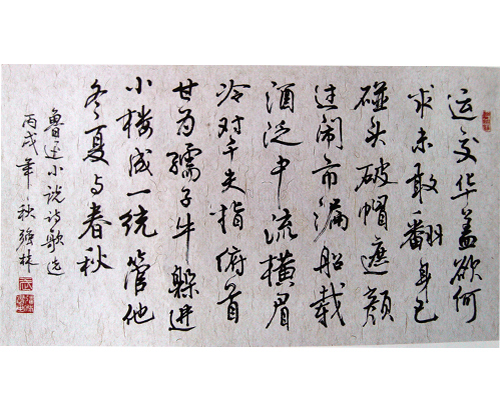 运交华盖欲何
求未敢翻身已
碰头破帽遮颜
过闹市漏船载
酒泛中流横眉
冷对千夫指俯首
甘为孺子牛躲进
小楼成一统管他
冬夏与春秋
鲁迅小说诗歌选
丙戌年 秋 强林